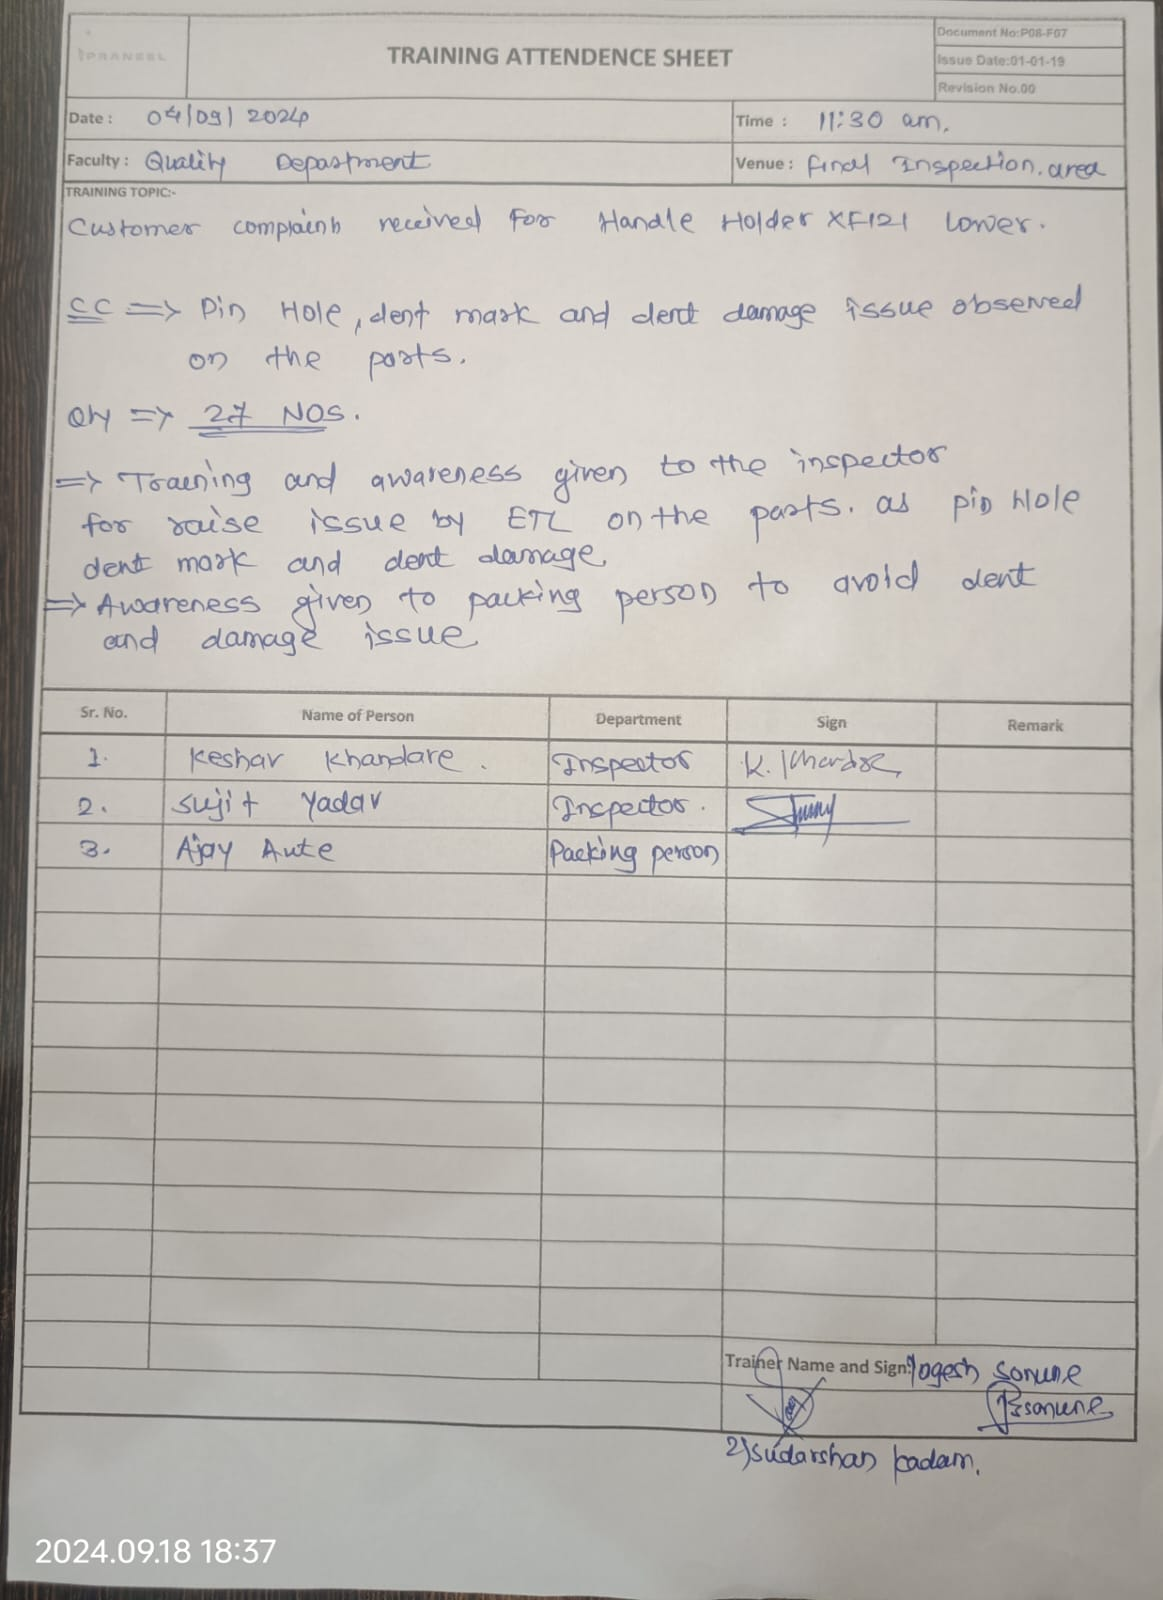 PRANEEL
TRAINING ATTENDENCE SHEET
Document No:P08-F07
Issue Date:01-01-19
Revision No.00
Date : 04/09/2024
Time : 11:30 am.
Faculty : Quality Department
Venue : final Inspection. area
TRAINING TOPIC:-
Customer complaint received For Handle Holder XF121 Lower.
CC => Pin Hole, dent mark and dent damage issue observed
on the parts.
Qty => 27 NOS.
=> Traening and awareness given to the inspector
for raise issue by ETL on the parts. as pin Hole
dent mark and dent damage.
=> Awareness given to packing person to avoid dent
and damage issue
Sr. No. Name of Person Department Sign Remark
1. Keshav Khandare. Inspector K. Khandare
2. Sujit Yadav Inspector.
3. Ajay Aute Packing person
Trainer Name and Sign: Yogesh Sonune
2) Sudarshan kadam.
2024.09.18 18:37